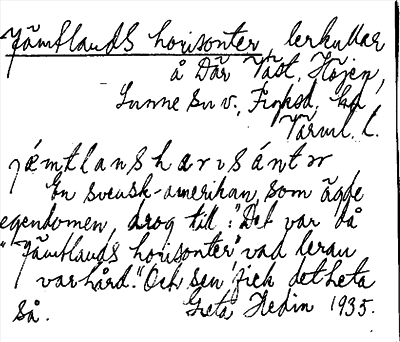 Jämtlands horisonter, lerkullar
å Där Väst, Höjen,
Sunne sn v.,
Värml. l.
jǽmtlanshorisántər
En svensk-amerikan, som ägde
egendomen, drog till: "Det var då
"Jämtlands horisonter" vad leran
var hård." Och sen fick det heta
så. Greta Hedin 1935.